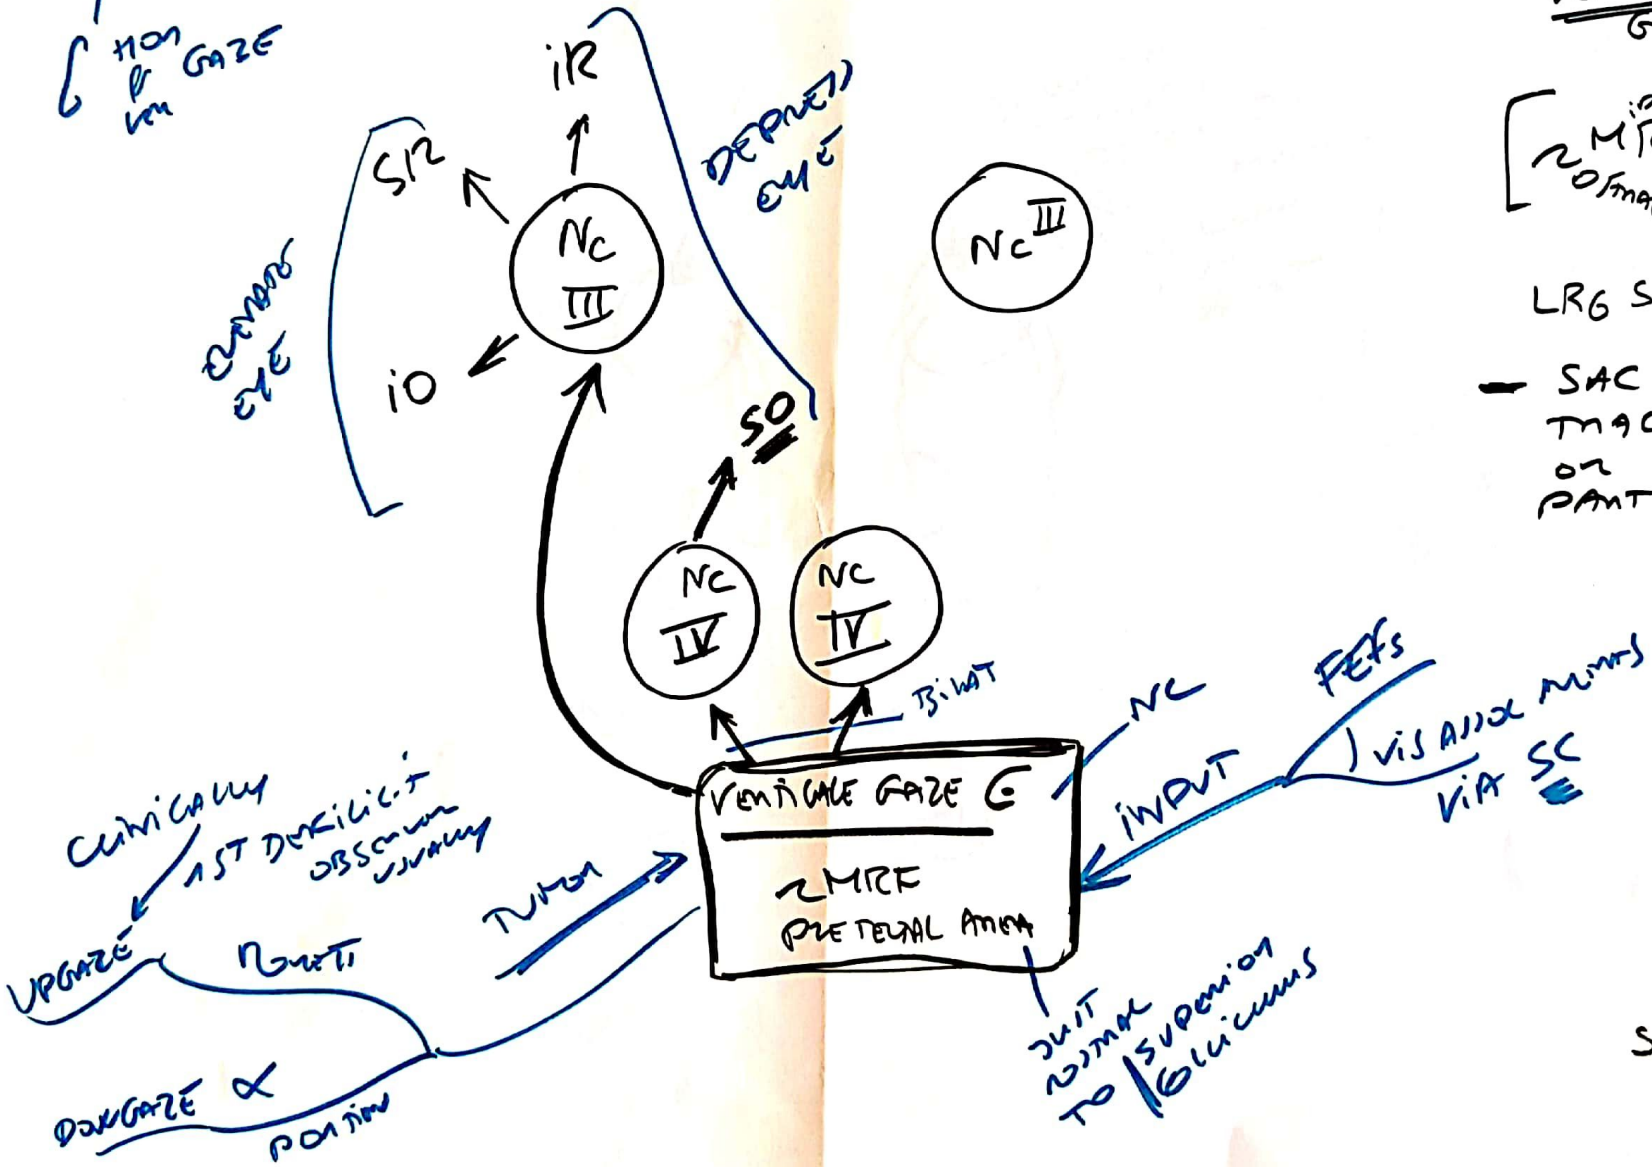 GAZE
iR
SR
NC
III
iO
ELEVATE
EYE
DEPRESS
EYE
NC III
SO
NC
IV
NC
IV
BiLAT
NC
VERTICALE GAZE C
MRF
PRETECTAL AREA
INPUT
FEFs
VIS ASSOC
VIA SC
JUST
ROSTRAL
TO SUPERIOR
COLLICULUS
TUMOR
CLINICALLY
1ST DEFICIT
OBSERVED
USUALLY
UPGAZE
DOWNGAZE
PORTION
LRG S
SAC
TRAC
OR
PART
S